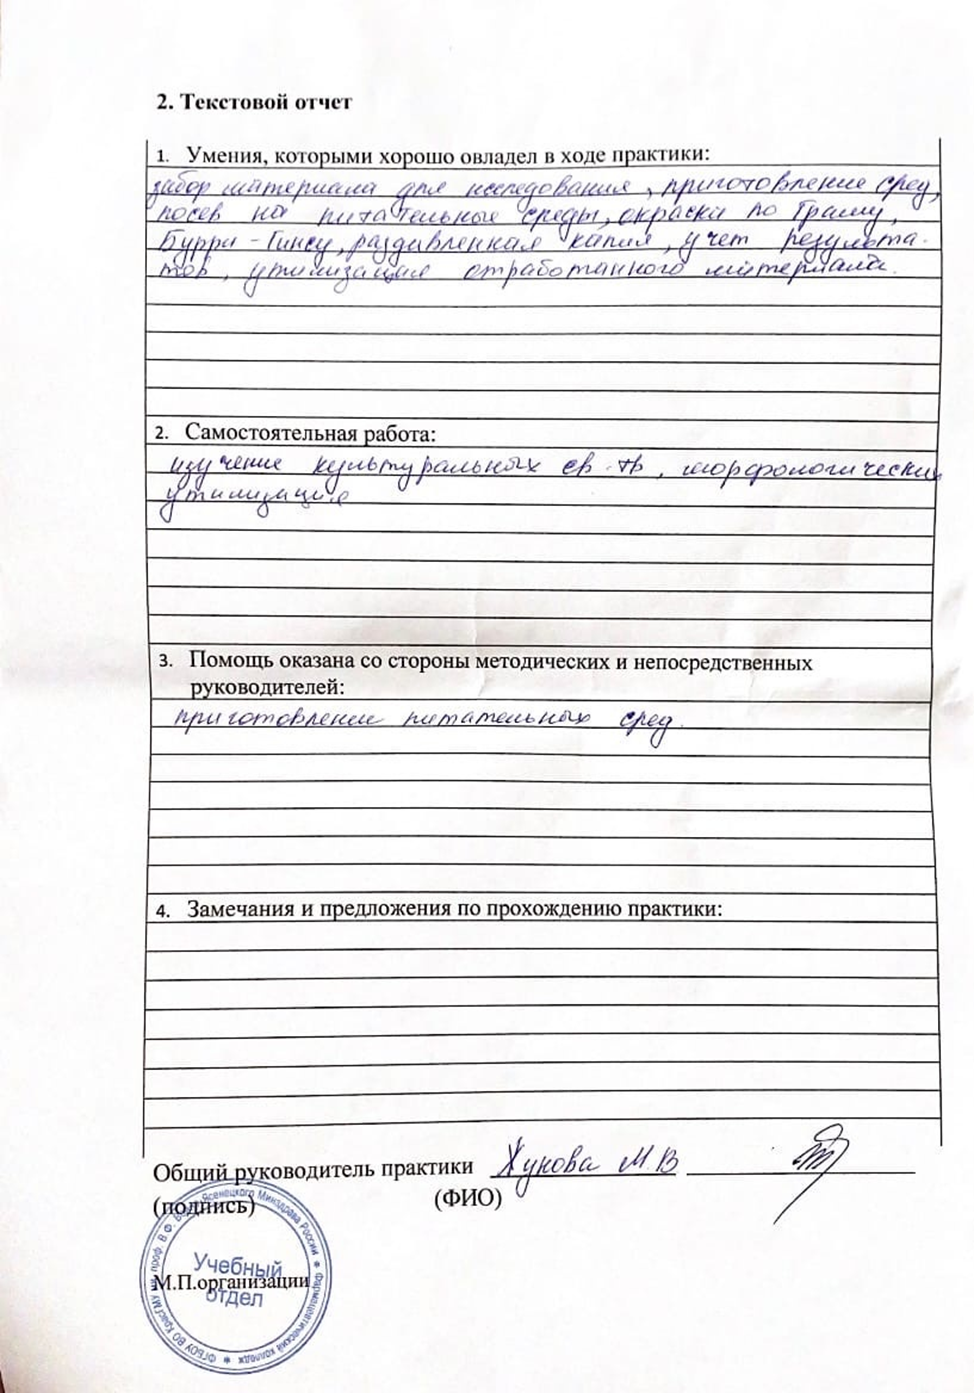 2. Текстовой отчет
1. Умения, которыми хорошо овладел в ходе практики:
забор материала для исследования, приготовление сред,
посев на питательные среды, окраска по Граму,
Бурри-Гинсу, раздавленная капля, учет результа-
тов, утилизация отработанного материала.
2. Самостоятельная работа:
изучение культуральных св-тв, морфологических
утилизация
3. Помощь оказана со стороны методических и непосредственных
руководителей:
приготовление питательных сред.
4. Замечания и предложения по прохождению практики:
Общий руководитель практики М.В
(подпись) (ФИО)
М.П.организации
Учебный
отдел
ФГБОУ ВО КрасГМУ им. проф. В.Ф. Войно-Ясенецкого Минздрава России * Фармацевтический колледж *